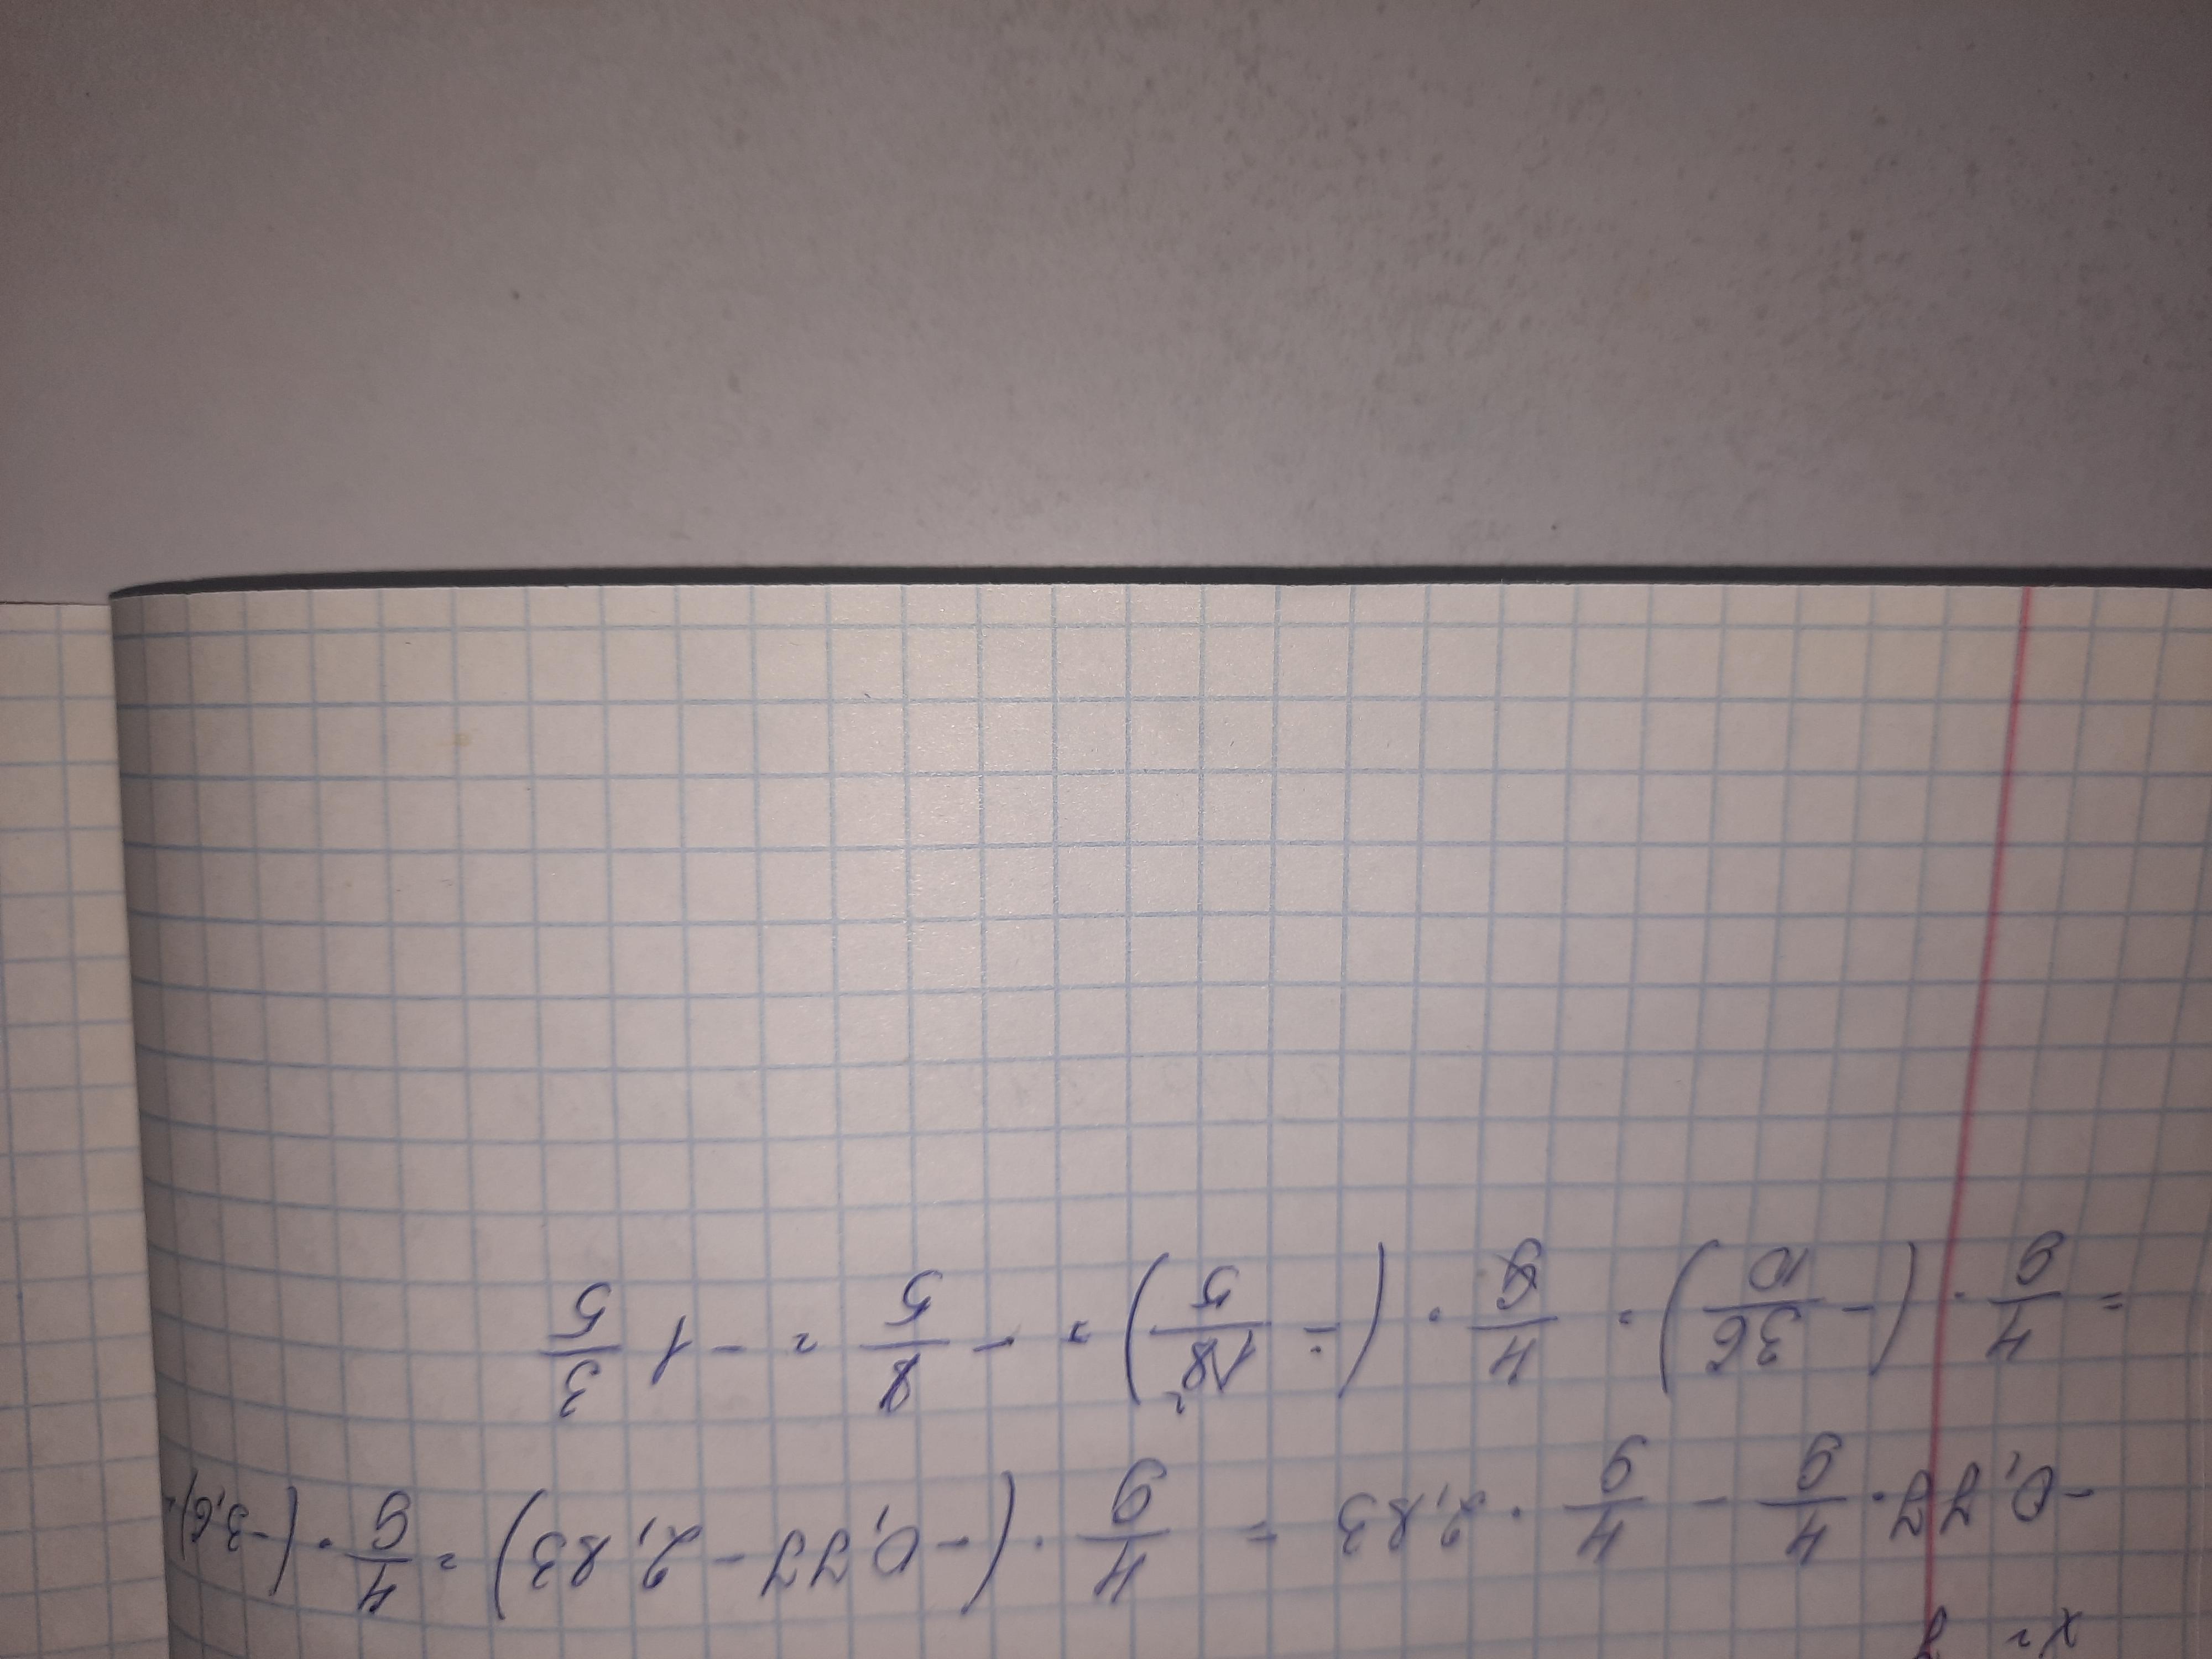 x =
-0,77 · 4/9 - 4/9 · 2,83 = 4/9 · (-0,77 - 2,83) = 4/9 · (-3,6) =
= 4/9 · (-36/10) = 4/9 · (-18²/5) = -8/5 = -1 3/5